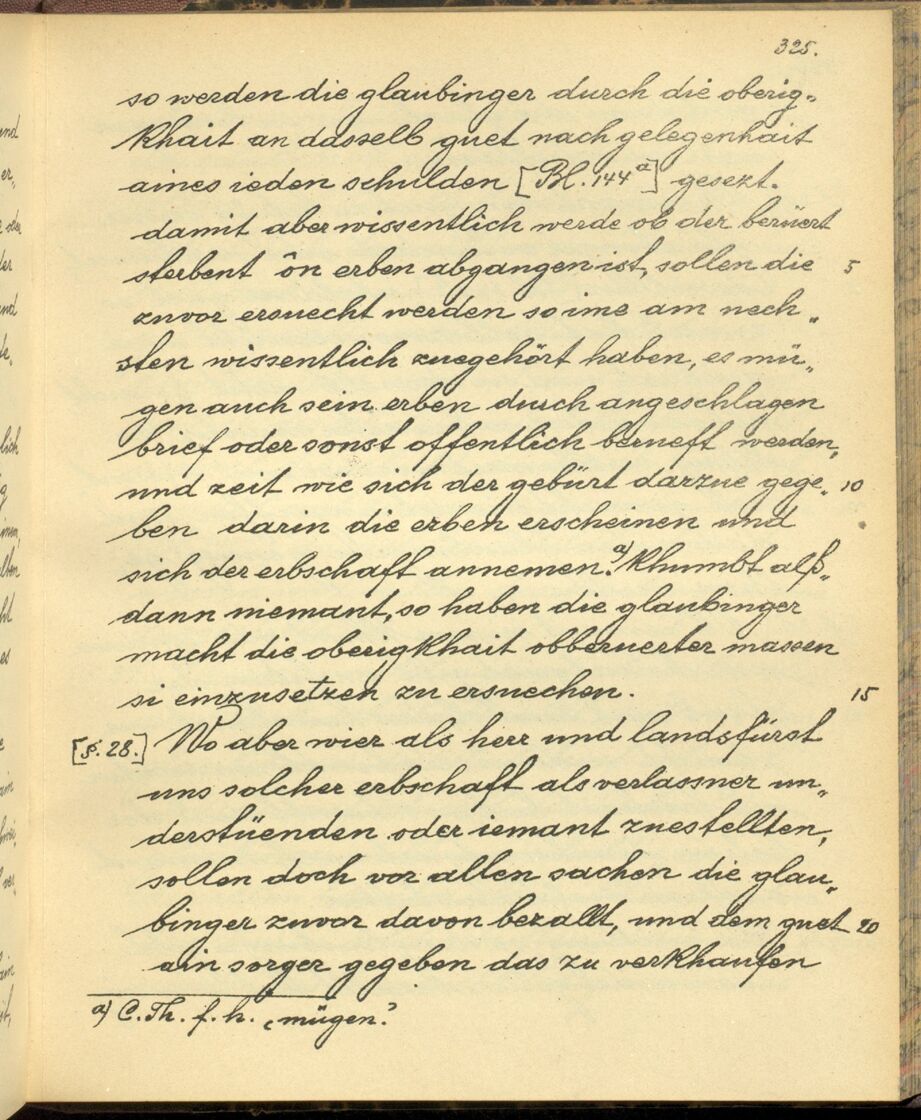 325.
so werden die glaubinger durch die oberig„
khait an dasselb guet nach gelegenhait
aines ieden schulden [Bl. 144a] gesezt.
damit aber wissentlich werde ob der berüert
sterbent ôn erben abgangen ist, sollen die 5
zuvor ersuecht werden so ime am nech„
sten wissentlich zuegehört haben, es mü„
gen auch sein erben durch angeschlagen
brief oder sonst offentlich berueft werden,
und zeit wie sich der gebürt darzue gege„ 10
ben darin die erben erscheinen und
sich der erbschaft annemen.a) Khumbt alß„
dann niemant, so haben die glaubinger
macht die oberigkhait obberuerter massen
si einzusetzen zu ersuechen. 15
[§. 28.] Wo aber wier als herr und landsfürst
uns solcher erbschaft als verlassner un„
derstüenden oder iemant zuestellten,
sollen doch vor allen sachen die glau„
binger zuvor davon bezallt, und dem guet 20
ain sorger gegeben das zu verkhaufen
a) C. Th. f. h. „mügen.“